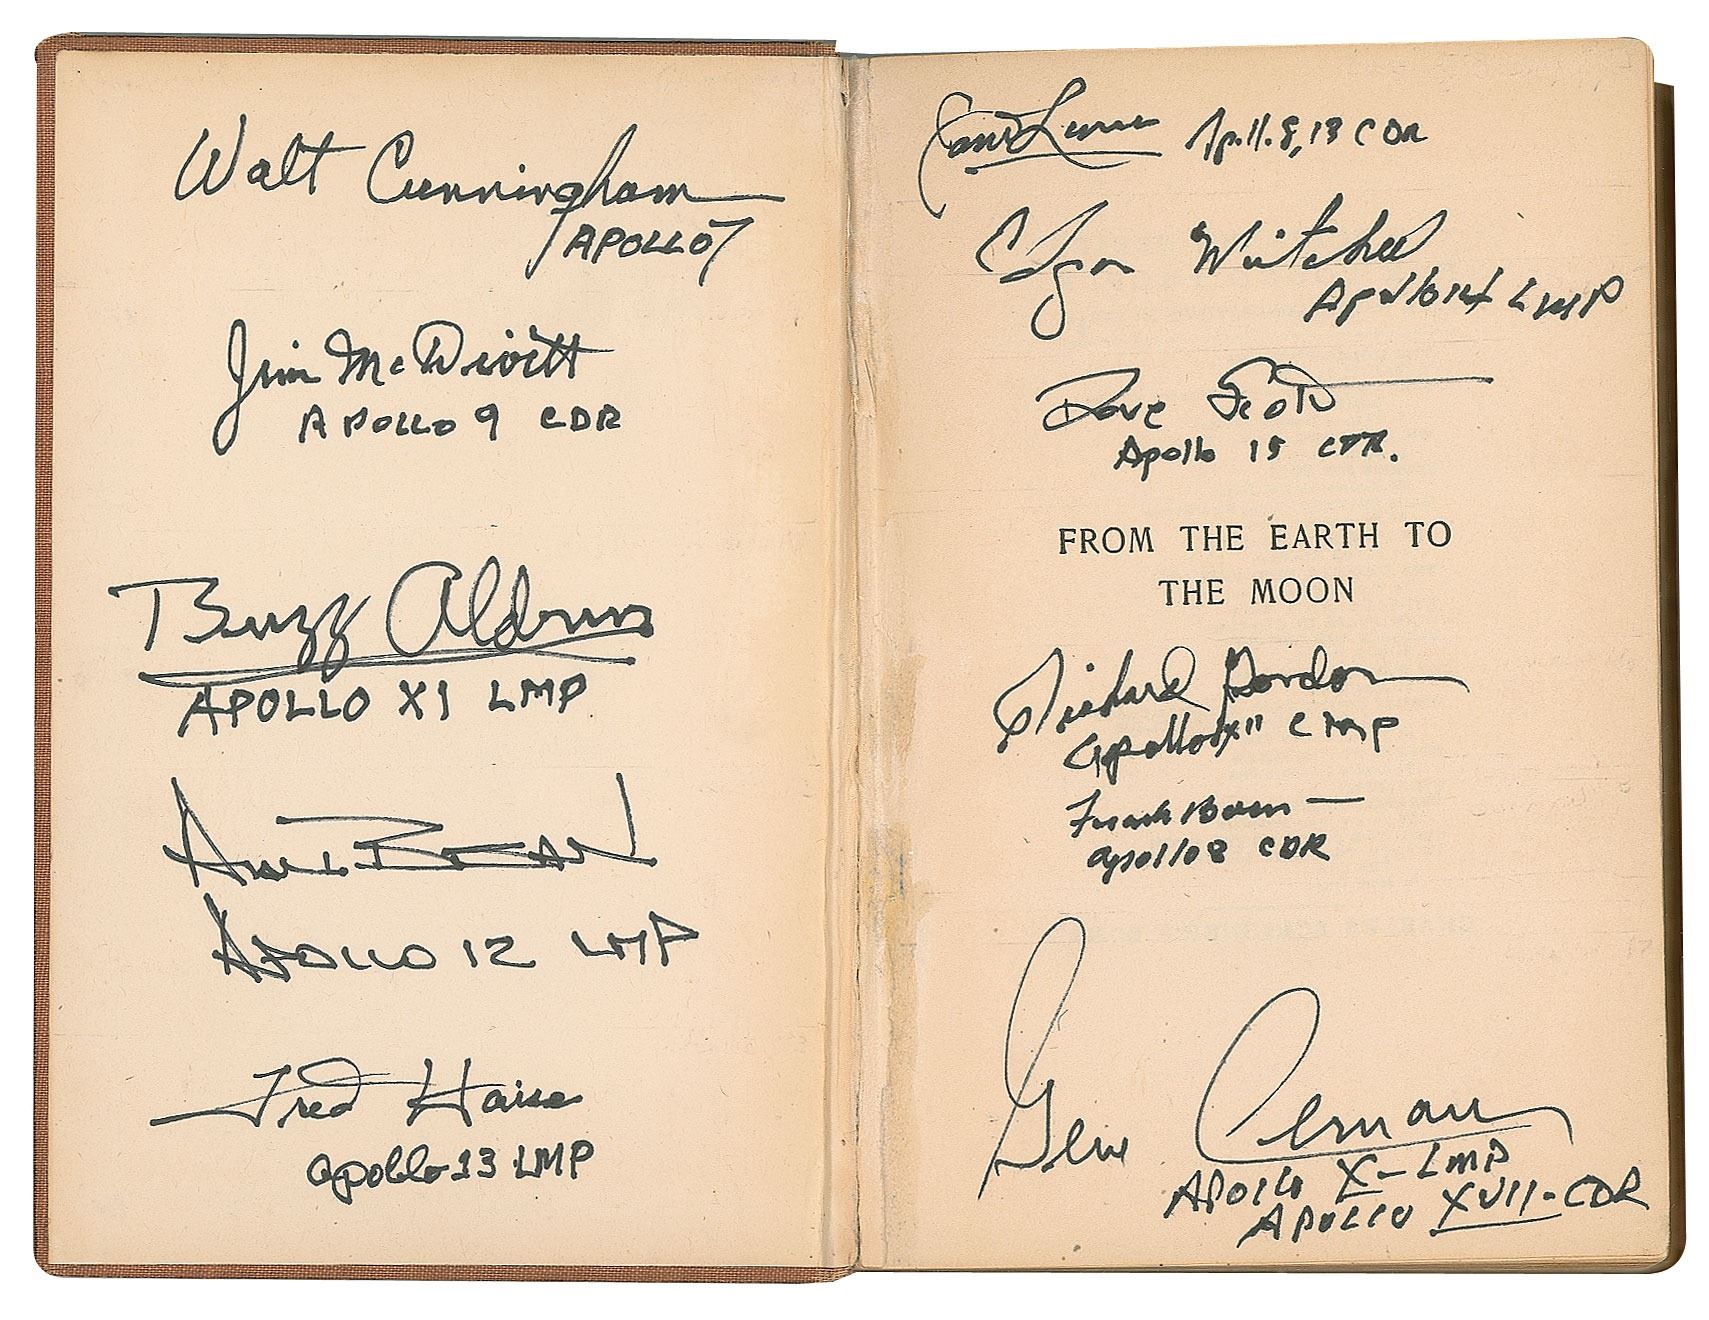 Walt Cunningham
APOLLO 7
Jim McDivitt
APOLLO 9 CDR
Buzz Aldrin
APOLLO XI LMP
Alan BEAN
APOLLO 12 LMP
Fred Haise
Apollo 13 LMP
James Lovell Apollo 8, 13 CDR
Edgar Mitchell
Apollo 14 LMP
Dave Scott
Apollo 15 CDR.
FROM THE EARTH TO
THE MOON
Richard Gordon
Apollo XII CMP
Frank Borman
Apollo 8 CDR
Gene Cernan
APOLLO X-LMP
APOLLO XVII-CDR